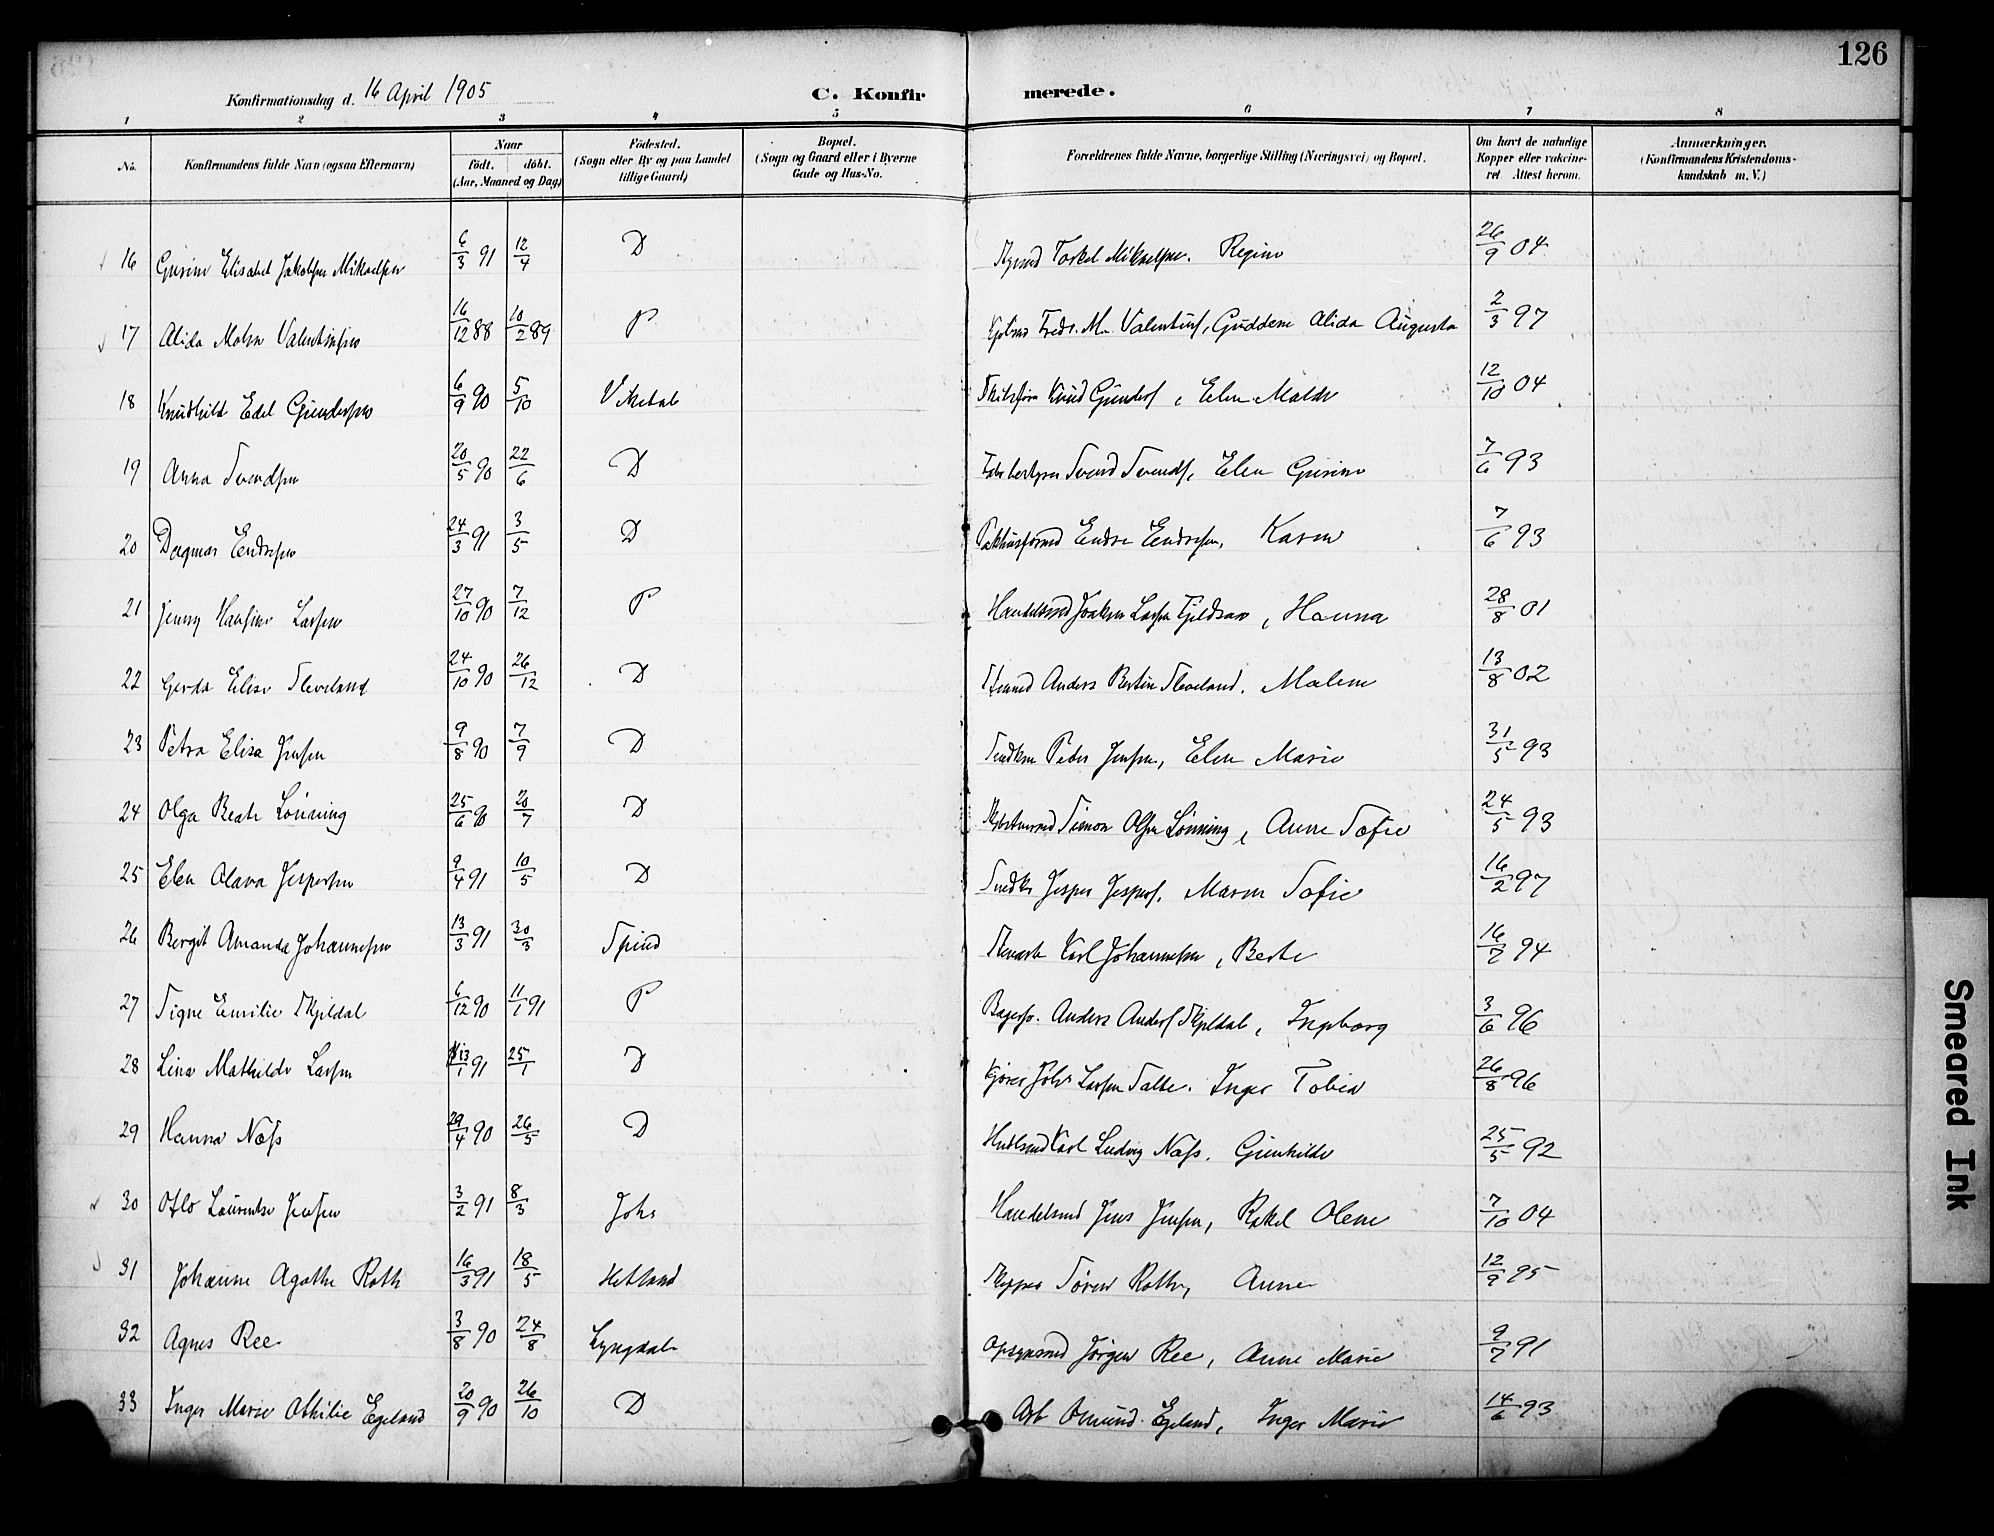 126
Konfirmationsdag d. 16 April 1905
C. Konfirmerede.
1 2 3 4 5 6 7 8
No. Konfirmandens fulde Navn (ogsaa Efternavn) Naar født. døbt. (Aar, Maaned og Dag) Fødested. (Sogn eller By og paa Landet tillige Gaard) Bopæl. (Sogn og Gaard eller i Byerne Gade og Hus-No. Forældrenes fulde Navne, borgerlige Stilling (Næringsvei) og Bopæl. Om havt de naturlige Kopper eller vakcineret. Attest herom. Anmærkninger. (Konfirmandens Kristendomskundskab m. V.)
16 Gurine Elisabet Jakobsen Mikaelsen 6/3 91 12/4 D Torkel Mikaelsen. Regine 26/9 04
17 Alida Mohn Valentinsen 16/12 88 10/2 89 P Fredr. M. Valentins, Guddene Alida Augusta 2/3 97
18 Knudhild Edel Gundersen 6/9 90 5/10 Vikedal Skibsfører Knud Gunders, Elen Malde 12/10 04
19 Anna Svendsen 20/5 90 22/6 D Svend Svends, Elen Gurine 7/6 93
20 Dagmar Endresen 24/3 91 3/5 D Pakhusformd Endre Endresen, Karen 7/6 93
21 Jenny Hansine Larsen 27/10 90 7/12 P Handelsmd Joakim Larsen Fjeldsaa, Hanna 28/8 01
22 Gerda Elise Sleveland 24/10 90 26/12 D Anders Bertin Sleveland. Malene 13/8 02
23 Petra Elisa Jensen 9/8 90 7/9 D Peder Jensen, Elen Marie 31/5 93
24 Olga Beate Lönning 25/6 90 20/7 D Simon Olsen Lönning, Anne Sofie 24/5 93
25 Elen Olava Jespersen 9/4 91 10/5 D Jesper Jespers. Maren Sofie 16/2 97
26 Bergit Amanda Johannesen 13/3 91 30/3 Spind Karl Johannesen, Berte 16/7 94
27 Signe Emilie Skjeldal 6/12 90 11/1 91 P Anders Anders Skjeldal, Ingeborg 3/6 96
28 Lina Mathilde Larsen 13/1 91 25/1 D Kjører Johs Larsen Salte. Inger Tobia 26/8 96
29 Hanna Næss 29/4 90 26/5 D Karl Ludvig Næss. Gunhilde 25/5 92
30 Laurentse Jensen 3/2 91 8/3 Johs Handelsmd Jens Jensen, Rakel Olene 7/10 04
31 Johanne Agathe Roth 16/3 91 18/5 Hetland Søren Rothe, Anne 12/9 95
32 Agnes Ree 3/8 90 24/8 Lyngdal Opsynsmd Jörgen Ree, Anne Marie 9/7 91
33 Inger Marie Othilie Egeland 20/9 90 26/10 D Arb Omund Egeland, Inger Marie 14/6 93
Smeared Ink